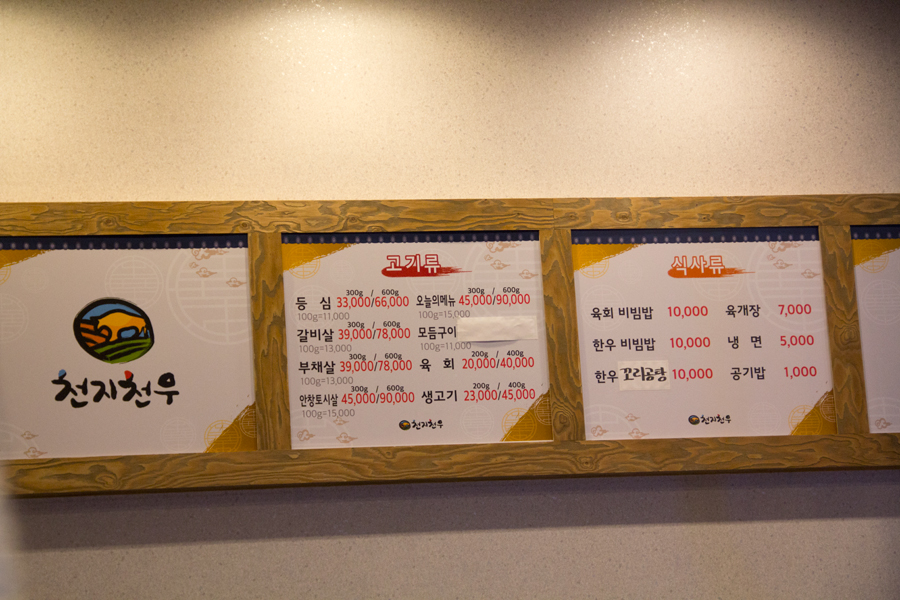 천지천우
고기류
300g / 600g
등 심 33,000/66,000
100g=11,000
300g / 600g
갈비살 39,000/78,000
100g=13,000
300g / 600g
부채살 39,000/78,000
100g=13,000
300g / 600g
안창토시살 45,000/90,000
100g=15,000
300g / 600g
오늘의메뉴 45,000/90,000
100g=15,000
모듬구이
100g=11,000
200g / 400g
육 회 20,000/40,000
200g / 400g
생고기 23,000/45,000
천지천우
식사류
육회 비빔밥 10,000
한우 비빔밥 10,000
한우 꼬리곰탕 10,000
육개장 7,000
냉 면 5,000
공기밥 1,000
천지천우